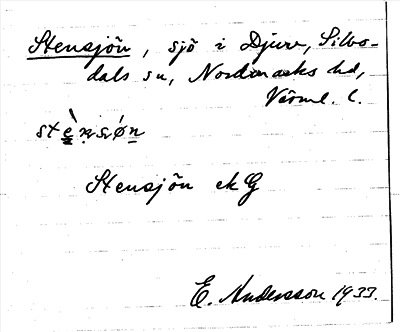 Stensjön, sjö i Djure, Silbo-
dals sn, Nordmarks hd,
Värml. l.
Stensjön ekG
E. Andersson 1933.